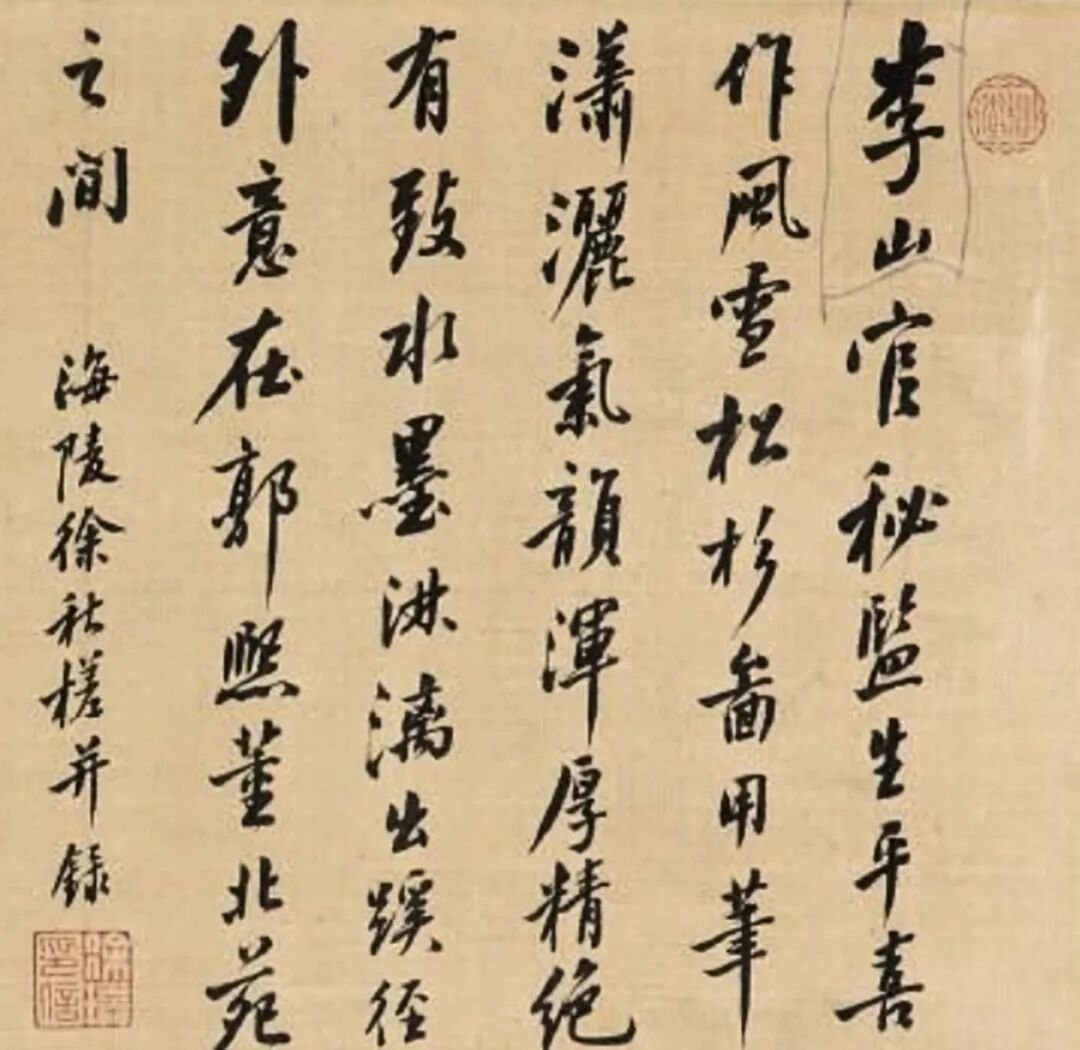 李山官秘監生平喜
作風雪松杉啚用筆
瀟灑氣韻渾厚精絶
有致水墨淋漓出蹊徑
外意在郭熙董北苑
之間
海陵徐秋槎并錄